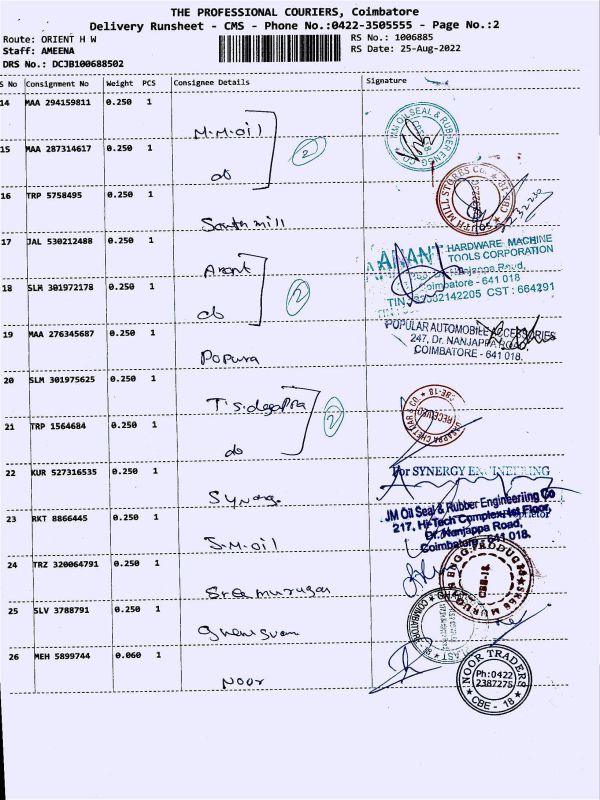 THE PROFESSIONAL COURIERS, Coimbatore
Delivery Runsheet - CMS - Phone No.:0422-3505555 - Page No.:2
Route: ORIENT H W
RS No.: 1006885
Staff: AMEENA
RS Date: 25-Aug-2022
DRS No.: DCJB100688502
S No Consignment No Weight PCS Consignee Details Signature
14 MAA 294159811 0.250 1
M.M.oil
JM OILSEAL & RUBBER ENGG CO
15 MAA 287314617 0.250 1
do
2
16 TRP 5758495 0.250 1
South mill
MILL STORES CO.
17 JAL 530212488 0.250 1
Anant
ANANT HARDWARE MACHINE
TOOLS CORPORATION
Nanjappa Road,
Coimbatore - 641 018
18 SLM 301972178 0.250 1
do
2
CST : 664291
19 MAA 276345687 0.250 1
Popura
POPULAR AUTOMOBILE ACCESSORIES
247, Dr. NANJAPPA ROAD,
COIMBATORE - 641 018.
20 SLM 301975625 0.250 1
CBE-18
RECEIVED
21 TRP 1564684 0.250 1
do
2
22 KUR 527316535 0.250 1
For SYNERGY ENGINEERING
23 RKT 8866445 0.250 1
J.M-oil
JM Oil Seal & Rubber Engineeriing Co
217, Hi-Tech Complex, 1st Floor,
Dr. Nanjappa Road,
Coimbatore - 641 018.
24 TRZ 320064791 0.250 1
Sree murugan
ENGG PRODUCTS
CBE-18.
25 SLV 3788791 0.250 1
COIMBATORE
26 MEH 5899744 0.060 1
Noor
NOOR TRADERS
Ph:0422
2387275
CBE - 18